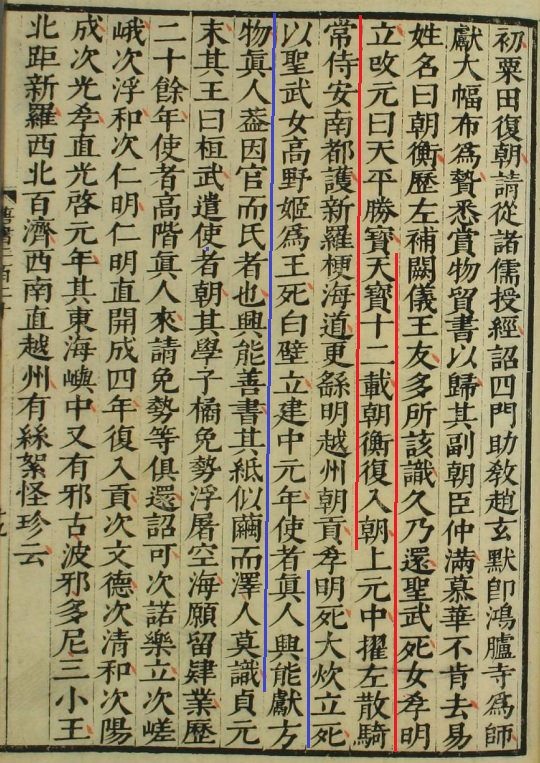 初粟田復朝請從諸儒授經詔四門助敎趙玄默卽鴻臚寺爲師
獻大幅布爲贄悉賞物貿書以歸其副朝臣仲滿慕華不肯去易
姓名曰朝衡歷左補闕儀王友多所該識久乃還聖武死女孝明
立改元曰天平勝寳天寳十二載朝衡復入朝上元中擢左散騎
常侍安南都護新羅梗海道更繇明越州朝貢孝明死大炊立死
以聖武女高野姬爲王死白壁立建中元年使者眞人興能獻方
物眞人蓋因官而氏者也興能善書其紙似繭而澤人莫識貞元
末其王曰桓武遣使者朝其學子橘免勢浮屠空海願留肄業歷
二十餘年使者高階眞人來請免勢等俱還詔可次諾樂立次嵯
峨次浮和次仁明仁明直開成四年復入貢次文德次清和次陽
成次光孝直光啓元年其東海嶼中又有邪古波邪多尼三小王
北距新羅西北百濟西南直越州有絲絮怪珍云